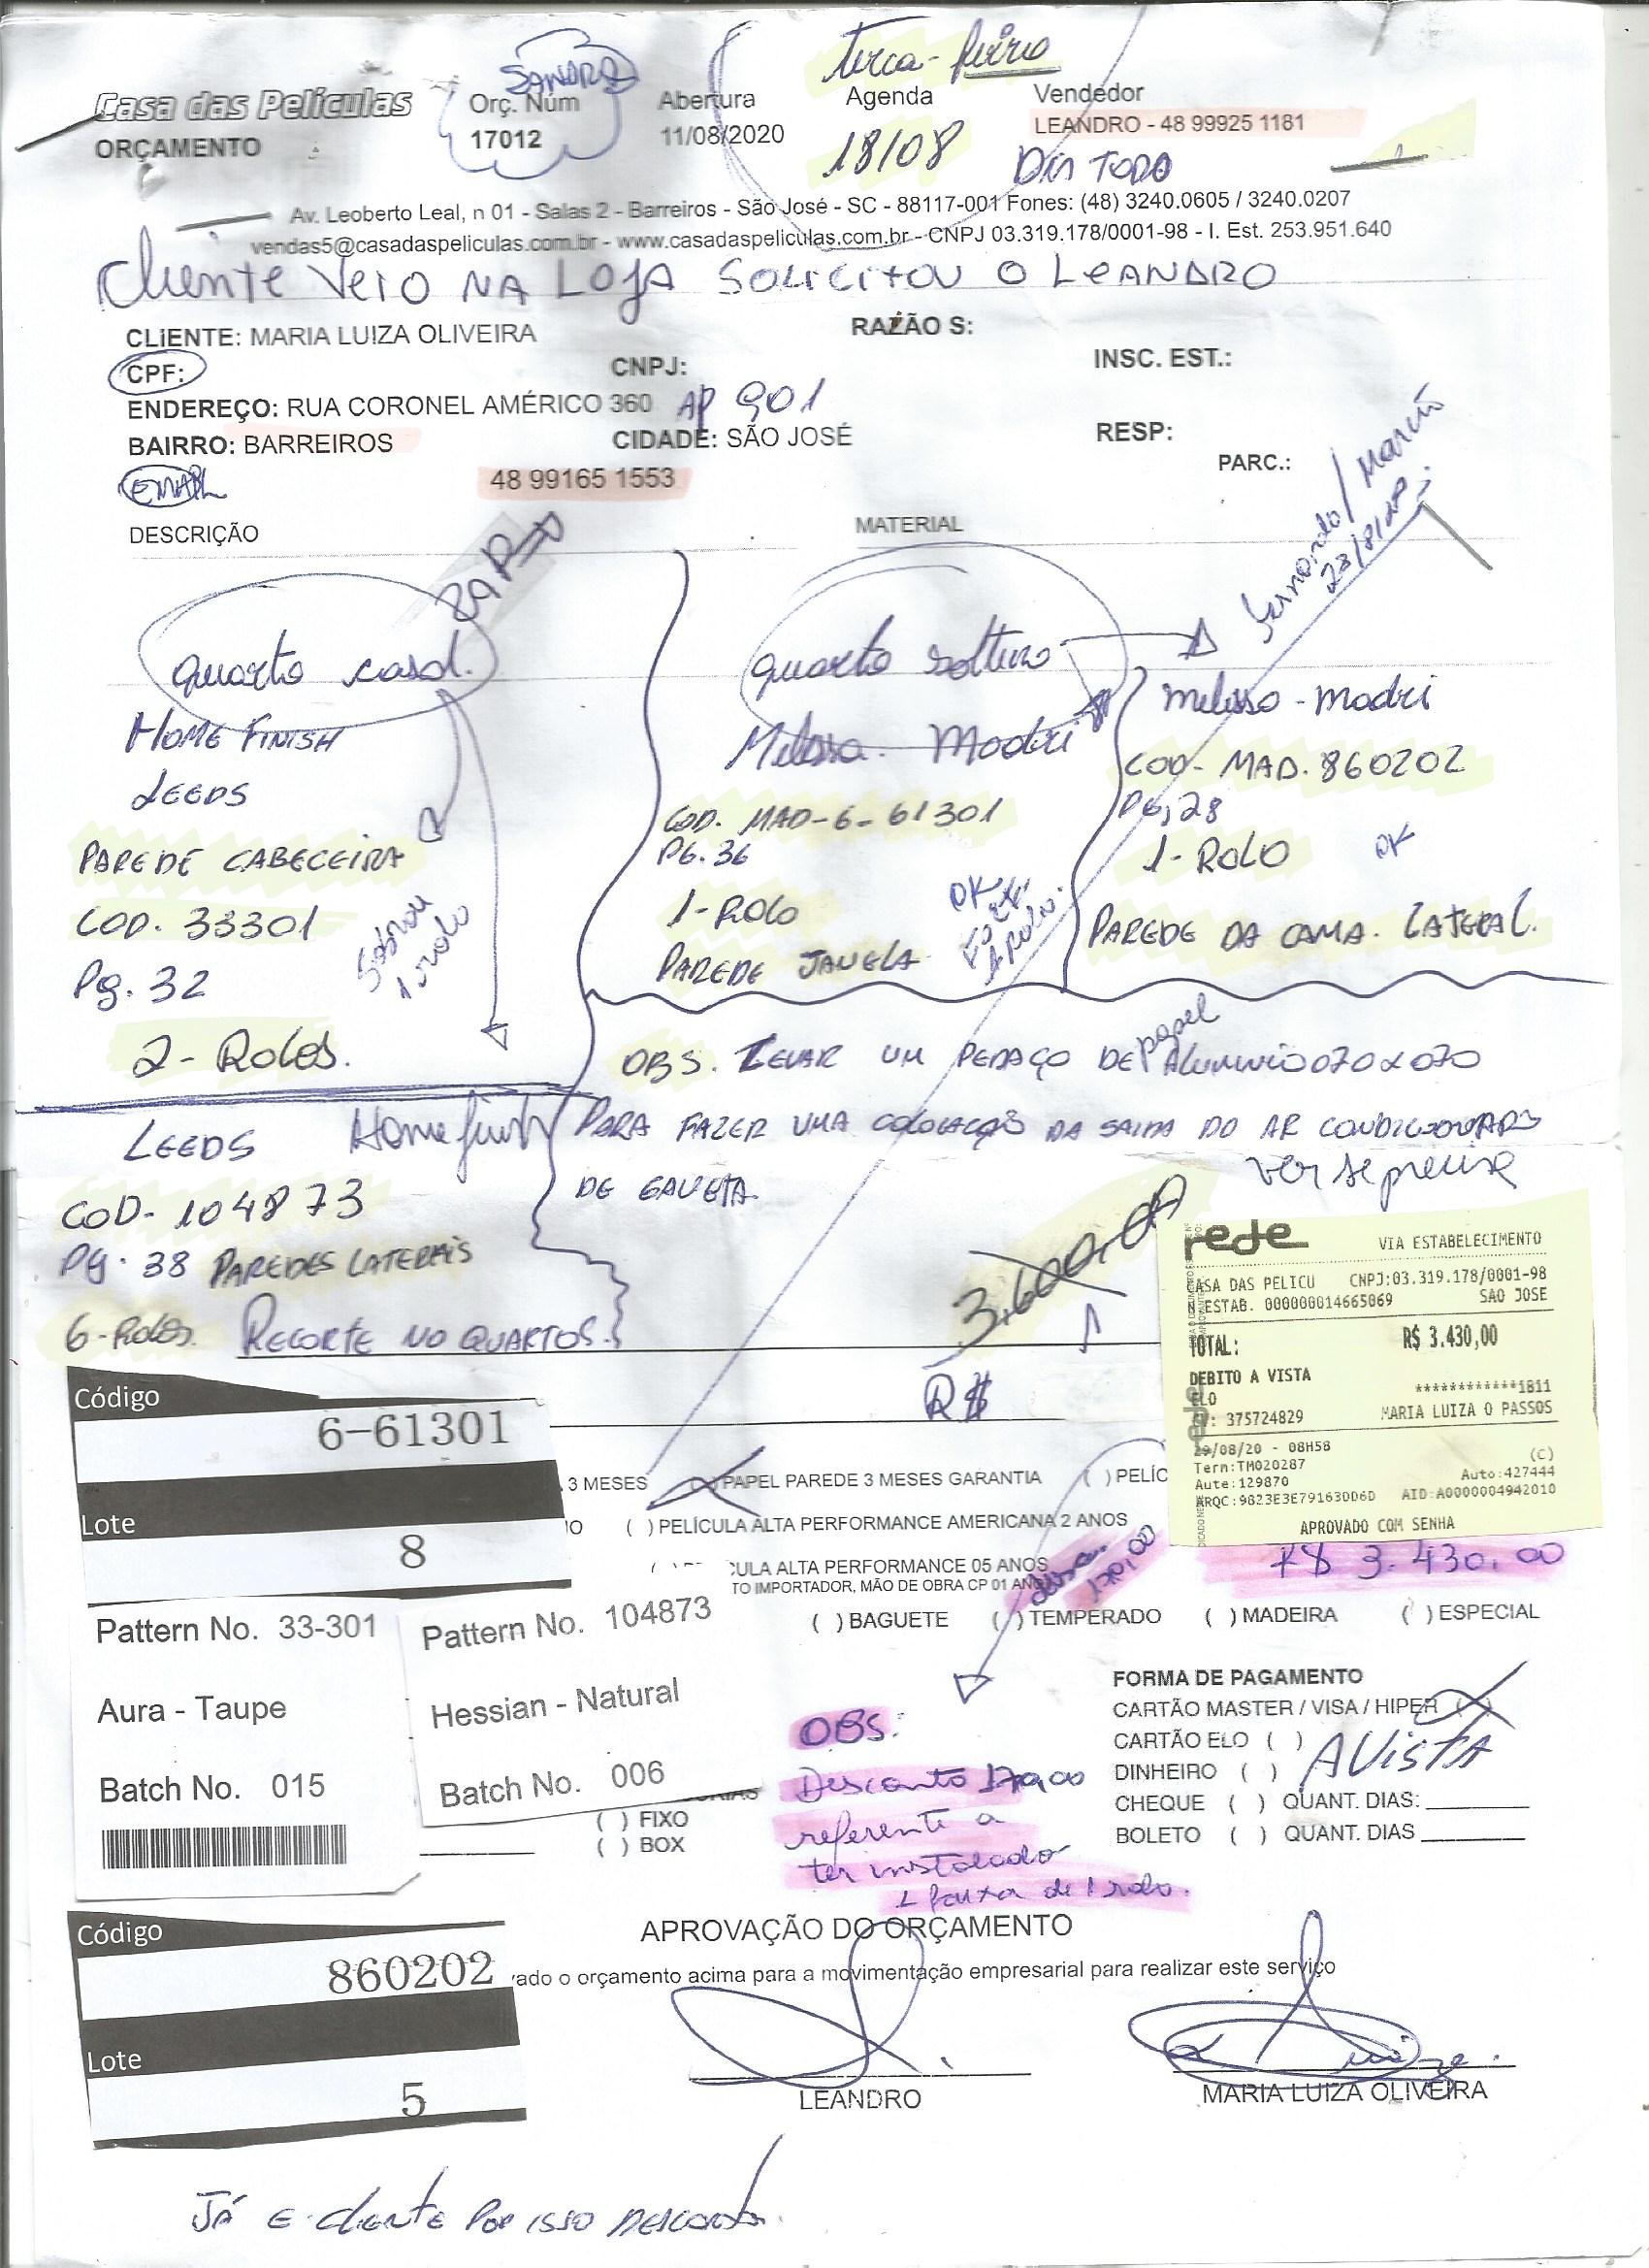 terca-feira
SANDRA
Casa das Películas
Orç. Núm
Abertura
Agenda
Vendedor
ORÇAMENTO
17012
11/08/2020
18/08
LEANDRO - 48 99925 1181
DIA TODO
Av. Leoberto Leal, n 01 - Salas 2 - Barreiros - São José - SC - 88117-001 Fones: (48) 3240.0605 / 3240.0207
vendas5@casadaspeliculas.com.br - www.casadaspeliculas.com.br - CNPJ 03.319.178/0001-98 - I. Est. 253.951.640
Cliente Veio NA LOJA SOLICITOU O LEANDRO
CLIENTE: MARIA LUIZA OLIVEIRA
RAZÃO S:
CPF:
CNPJ:
INSC. EST.:
ENDEREÇO: RUA CORONEL AMÉRICO 360 AP 901
BAIRRO: BARREIROS
CIDADE: SÃO JOSÉ
RESP:
PARC.:
EMAIL
48 99165 1553
DESCRIÇÃO
MATERIAL
quarto casal.
HOME FINISH
LEEDS
PAREDE CABECEIRA
COD. 33301
Pg. 32
2- Rolos.
1 rolo
quarto solteiro
Melissa. Modri
COD. MAD-6-61301
PG. 36
1-ROLO
PAREDE JANELA
OK
melissa - modri
COD- MAD. 860202
PG, 28
1-ROLO
OK
PAREDE DA CAMA. LATERAL.
OBS. LEVAR UM PEDAÇO DE papel ALUMINIO 070 x 070
PARA FAZER UMA COLOCAÇÃO DA SAIDA DO AR CONDICIONADO
DE GAVETA.
ver se precisa
LEEDS Home finish
COD- 104873
Pg. 38 PAREDES LATERAIS
6-Rolos. RECORTE NO QUARTOS.
3.600,00
R$
rede
VIA ESTABELECIMENTO
CASA DAS PELICU CNPJ:03.319.178/0001-98
N.ESTAB. 000000014665069 SAO JOSE
TOTAL: R$ 3.430,00
DEBITO A VISTA
ELO ************1811
CV: 375724829 MARIA LUIZA O PASSOS
29/08/20 - 08H58
(C)
Term:TM020287
Auto:427444
Aute:129870
ARQC:9823E3E791630D6D AID:A0000004942010
APROVADO COM SENHA
R$ 3.430,00
Código
6-61301
Lote
8
3 MESES
PAPEL PAREDE 3 MESES GARANTIA
( ) PELÍC
( ) PELÍCULA ALTA PERFORMANCE AMERICANA 2 ANOS
CULA ALTA PERFORMANCE 05 ANOS
TO IMPORTADOR, MÃO DE OBRA CP 01 ANO
170,00
( ) BAGUETE
( ) TEMPERADO
( ) MADEIRA
( ) ESPECIAL
Pattern No. 33-301
Aura - Taupe
Batch No. 015
Pattern No. 104873
Hessian - Natural
Batch No. 006
( ) FIXO
( ) BOX
OBS:
Desconto 170,00
referente a
ter instalado
1 faixa de 1 rolo.
FORMA DE PAGAMENTO
CARTÃO MASTER / VISA / HIPER ( )
CARTÃO ELO ( )
DINHEIRO ( )
AVISTA
CHEQUE ( ) QUANT. DIAS:
BOLETO ( ) QUANT. DIAS
APROVAÇÃO DO ORÇAMENTO
vado o orçamento acima para a movimentação empresarial para realizar este serviço
LEANDRO
MARIA LUIZA OLIVEIRA
Código
860202
Lote
5
JÁ E cliente POR ISSO DESCONTO.